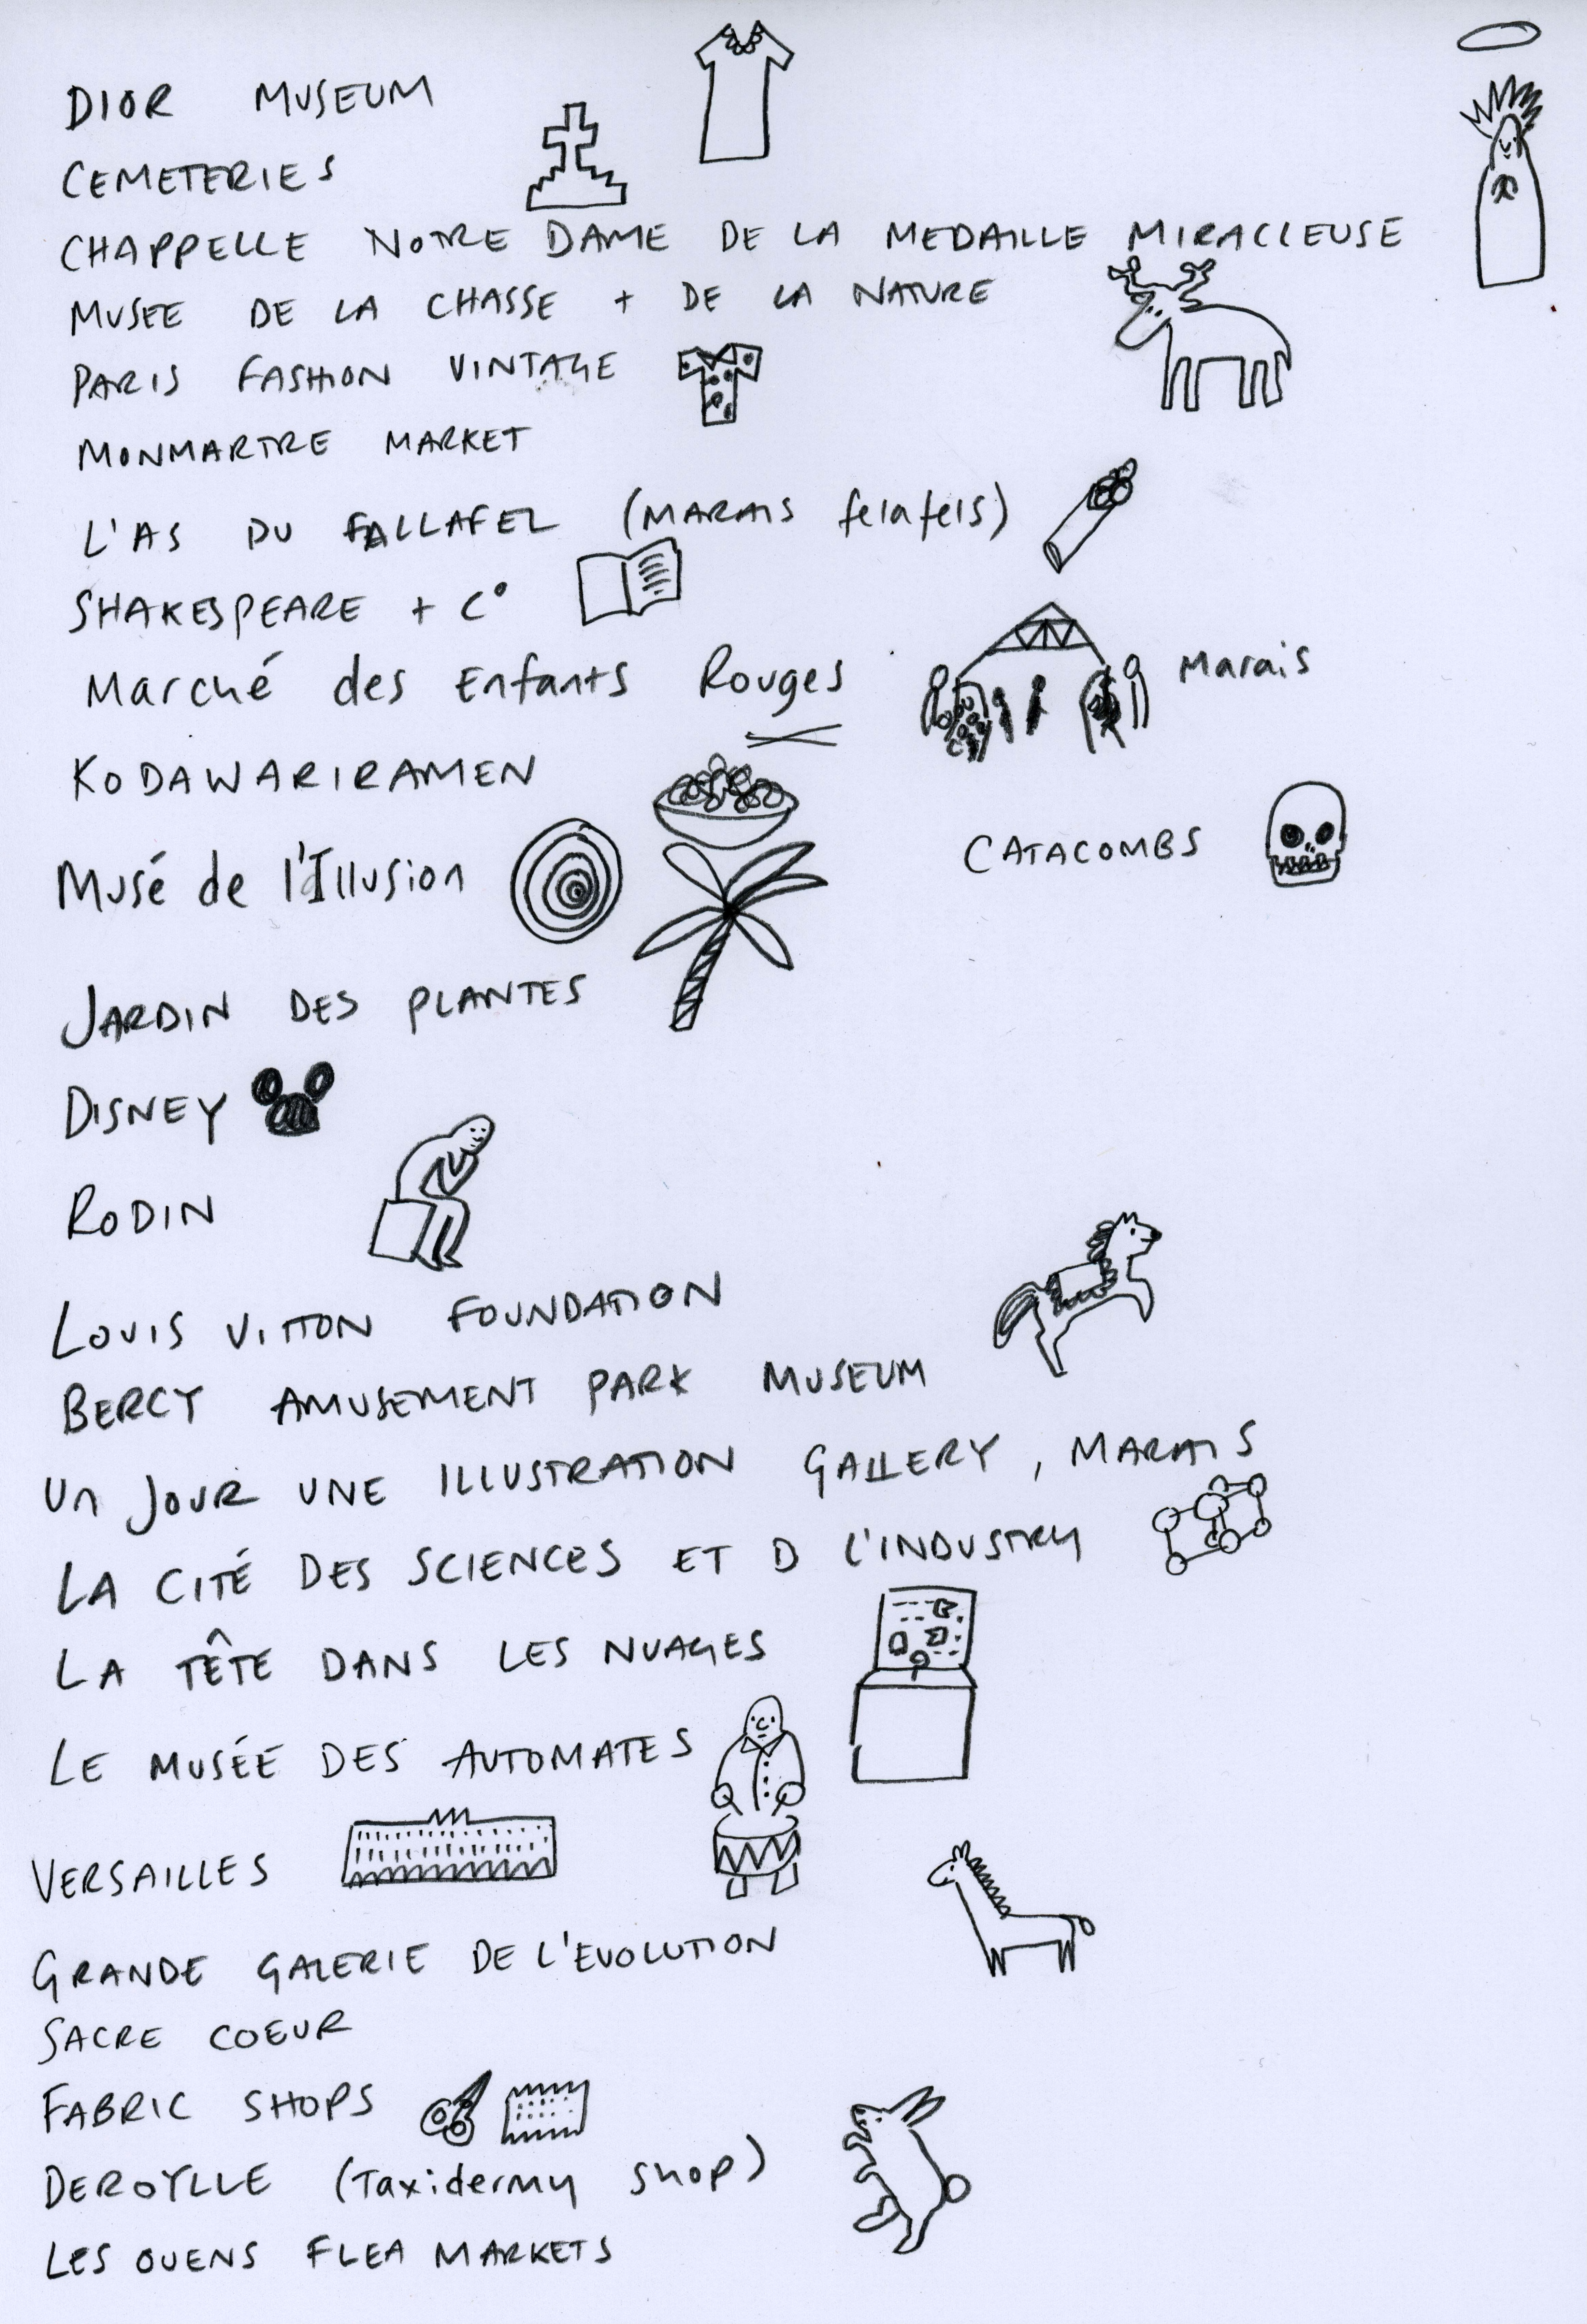 DIOR MUSEUM
CEMETERIES
CHAPPELLE NOTRE DAME DE LA MEDAILLE MIRACLEUSE
MUSEE DE LA CHASSE + DE LA NATURE
PARIS FASHION VINTAGE
MONMARTRE MARKET
L'AS DU FALLAFEL (MARAIS felafels)
SHAKESPEARE + C°
Marché des Enfants Rouges Marais
KODAWARIRAMEN
CATACOMBS
Musé de l'Illusion
JARDIN DES PLANTES
DISNEY
RODIN
LOUIS VITTON FOUNDATION
BERCY AMUSEMENT PARK MUSEUM
Un JOUR UNE ILLUSTRATION GALLERY, MARAIS
LA CITÉ DES SCIENCES ET D L'INDUSTRY
LA TÊTE DANS LES NUAGES
LE MUSÉE DES AUTOMATES
VERSAILLES
GRANDE GALERIE DE L'EVOLUTION
SACRE COEUR
FABRIC SHOPS
DEROYLLE (Taxidermy shop)
LES OUENS FLEA MARKETS